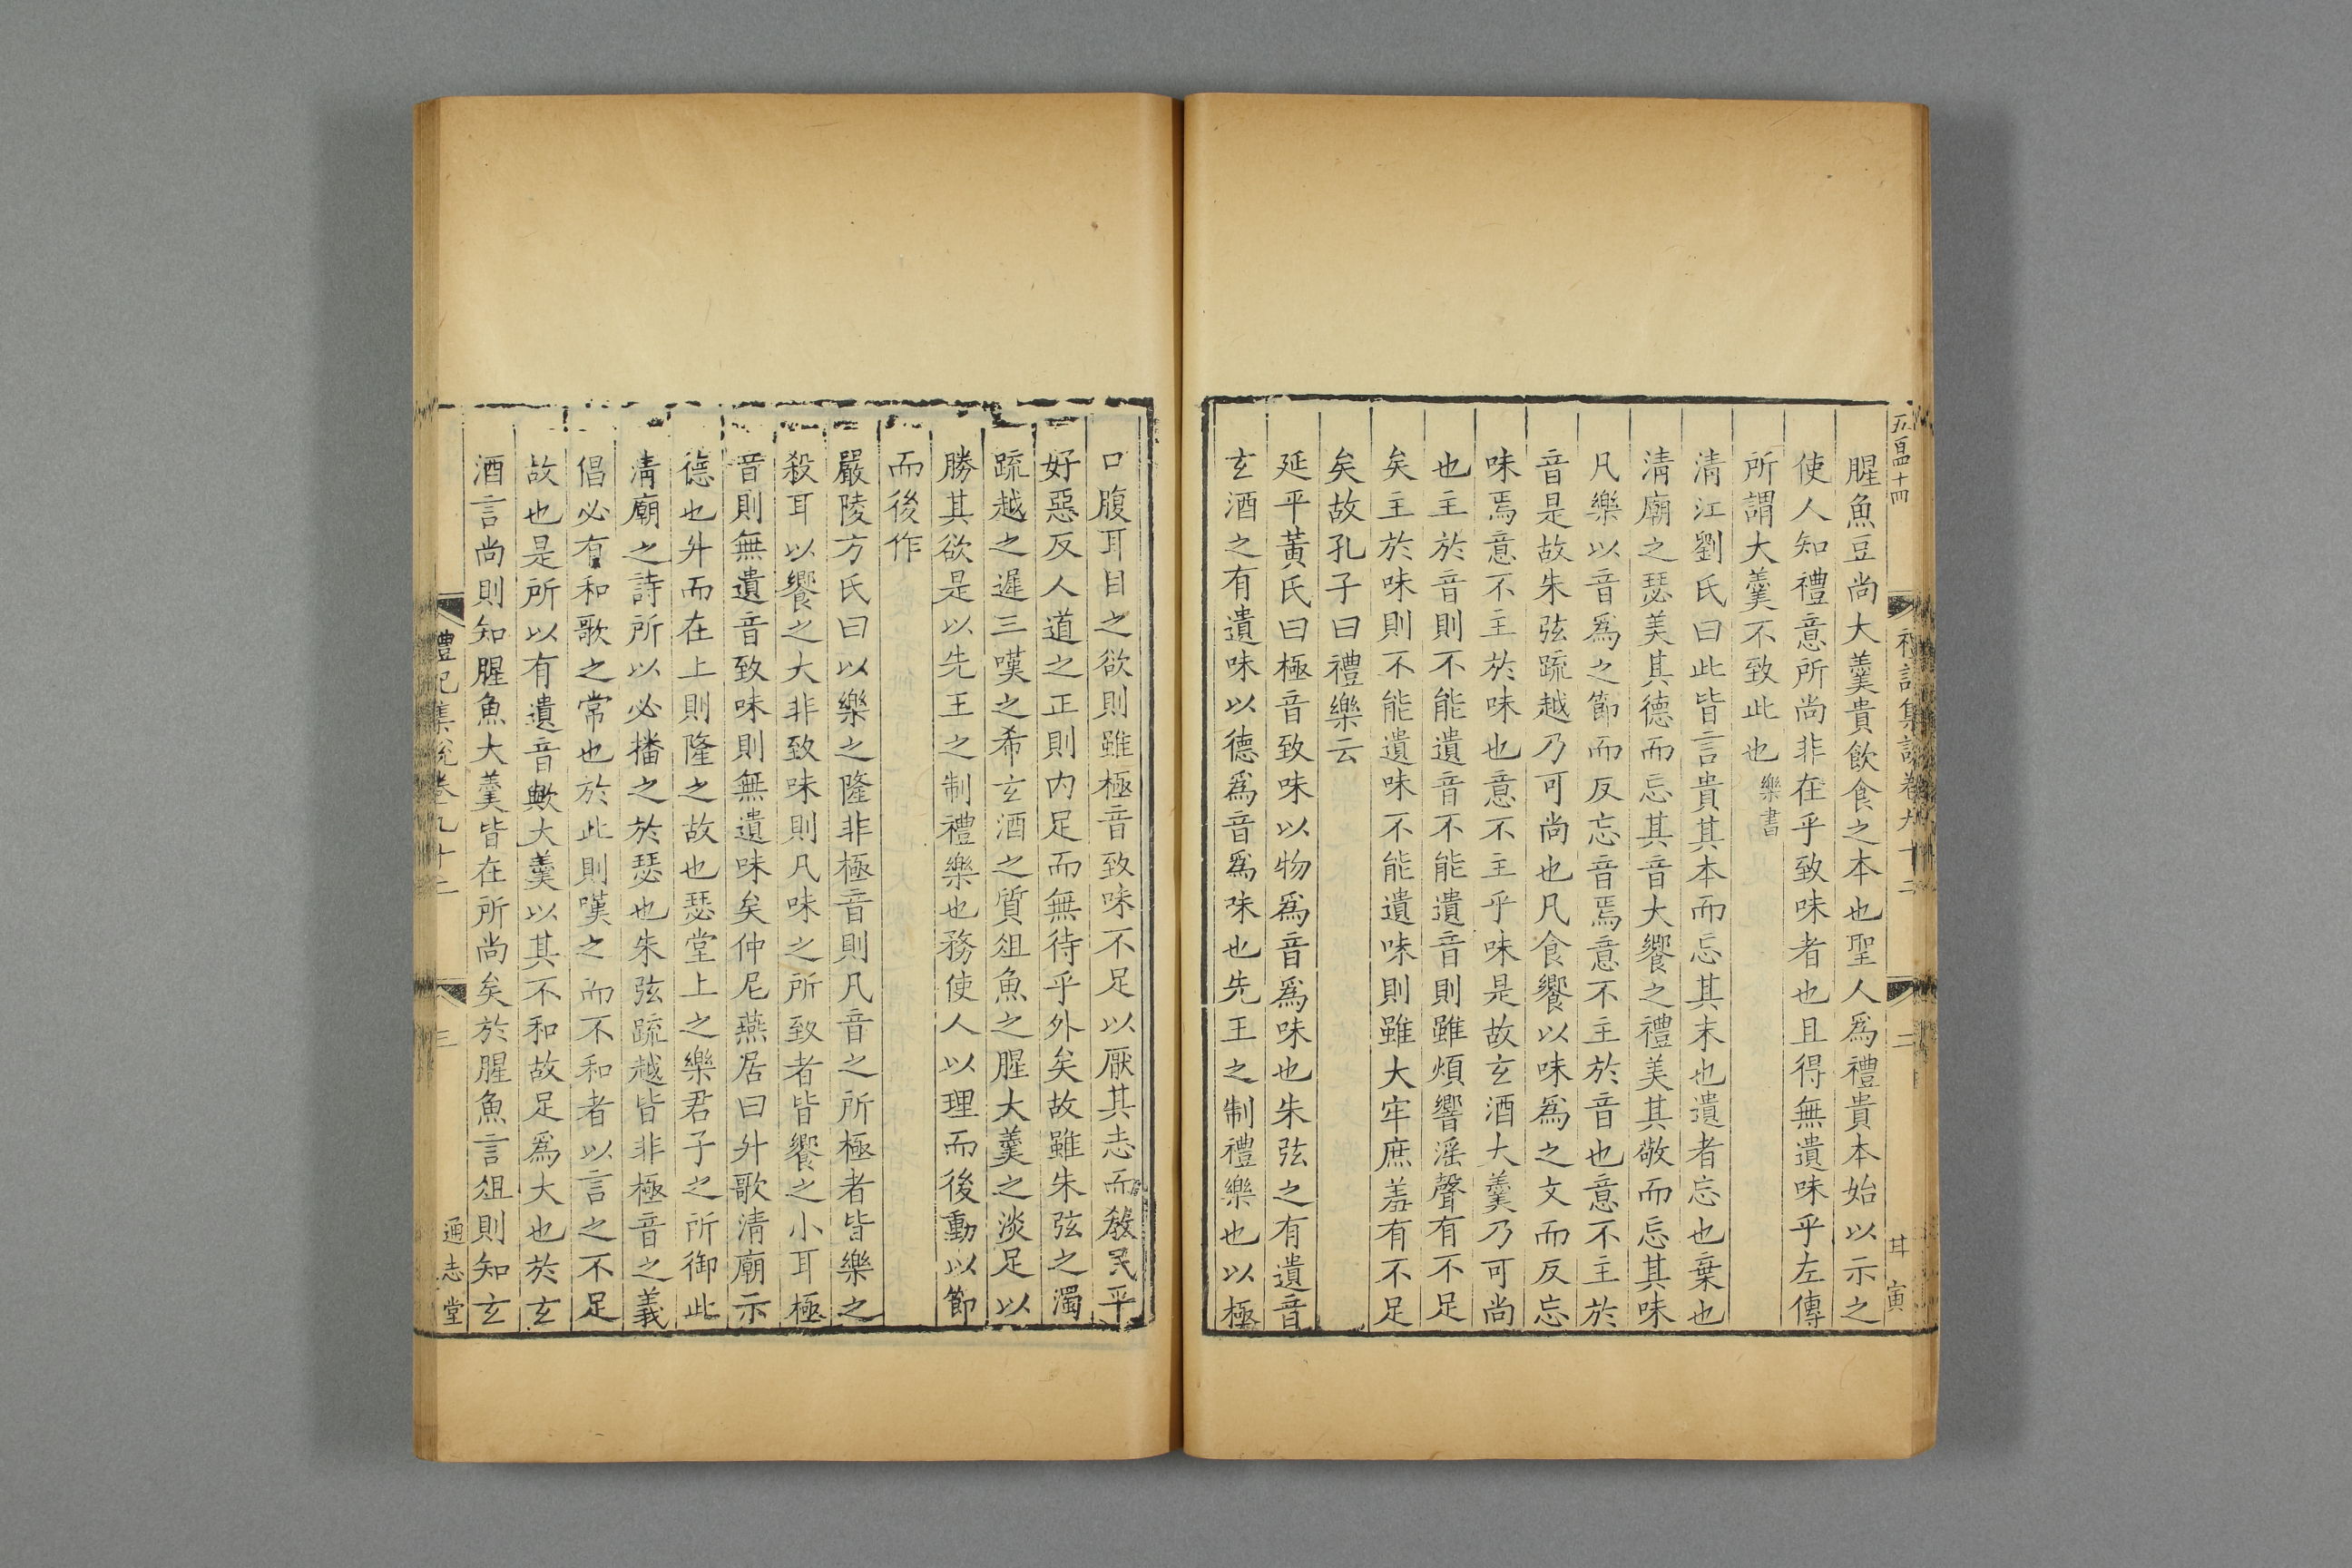 五百四十四
禮記集說卷九十二
二
甘寅
腥魚豆尚大羹貴飲食之本也聖人爲禮貴本始以示之
使人知禮意所尚非在乎致味者也且得無遺味乎左傳
所謂大羹不致此也樂書
清江劉氏曰此皆言貴其本而忘其末也遺者忘也棄也
清廟之瑟美其德而忘其音大饗之禮美其敬而忘其味
凡樂以音爲之節而反忘音焉意不主於音也意不主於
音是故朱弦疏越乃可尚也凡食饗以味爲之文而反忘
味焉意不主於味也意不主乎味是故玄酒大羹乃可尚
也主於音則不能遺音不能遺音則雖煩響淫聲有不足
矣主於味則不能遺味不能遺味則雖大牢庶羞有不足
矣故孔子曰禮樂云
延平黃氏曰極音致味以物爲音爲味也朱弦之有遺音
玄酒之有遺味以德爲音爲味也先王之制禮樂也以極
口腹耳目之欲則雖極音致味不足以厭其志而敎民平
好惡反人道之正則內足而無待乎外矣故雖朱弦之濁
疏越之遲三嘆之希玄酒之質俎魚之腥大羹之淡足以
勝其欲是以先王之制禮樂也務使人以理而後動以節
而後作
嚴陵方氏曰以樂之隆非極音則凡音之所極者皆樂之
殺耳以饗之大非致味則凡味之所致者皆饗之小耳極
音則無遺音致味則無遺味矣仲尼燕居曰升歌清廟示
德也升而在上則隆之故也瑟堂上之樂君子之所御此
清廟之詩所以必播之於瑟也朱弦疏越皆非極音之義
倡必有和歌之常也於此則嘆之而不和者以言之不足
故也是所以有遺音歟大羹以其不和故足爲大也於玄
酒言尚則知腥魚大羹皆在所尚矣於腥魚言俎則知玄
禮記集說卷九十二
三
通志堂